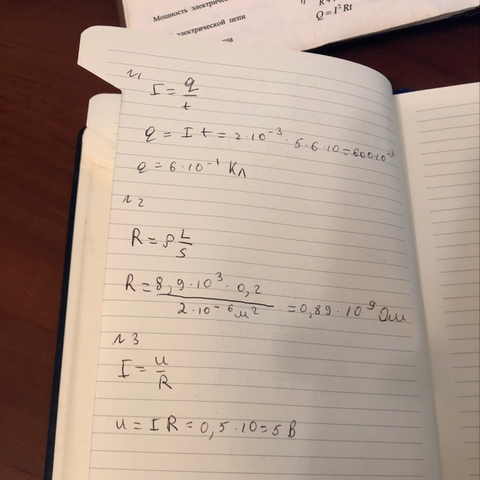 Мощность электрическ
электрической цепи
Q = I² Rt
№1
I = q/t
q = I t = 2·10⁻³ · 5·6·10 = 600·10⁻³
q = 6·10⁻¹ Кл
№2
R = ρ L/S
R = 8,9·10³·0,2 / 2·10⁻⁶ м² = 0,89·10⁹ Ом
№3
I = u/R
u = I R = 0,5·10 = 5 В